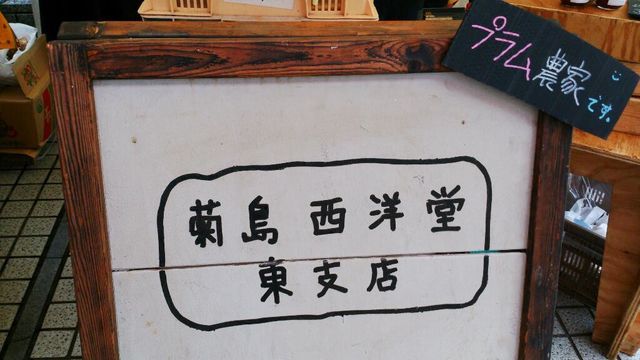 プラム農家です。
菊島 西洋堂
東支店